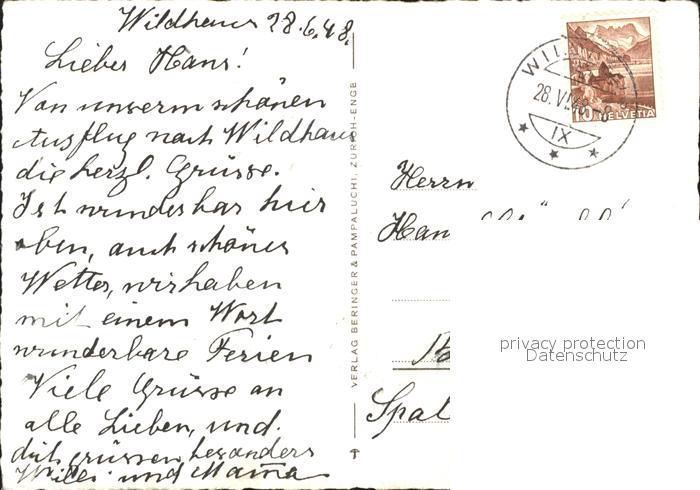 Wildhaus 28.6.48.
Lieber Hans!
Von unserm schönen
Ausflug nach Wildhaus
die herzl. Grüsse.
Ist wunderbar hier
oben, auch schönes
Wetter, wir haben
mit einem Wort
wunderbare Ferien
Viele Grüsse an
alle Lieben, und
dich grüssen besonders
und Mama
VERLAG BERINGER & PAMPALUCHI, ZÜRICH-ENGE
28. VI. 48 - 8
IX
10 HELVETIA
Herrn
Han
Spal
privacy protection
Datenschutz